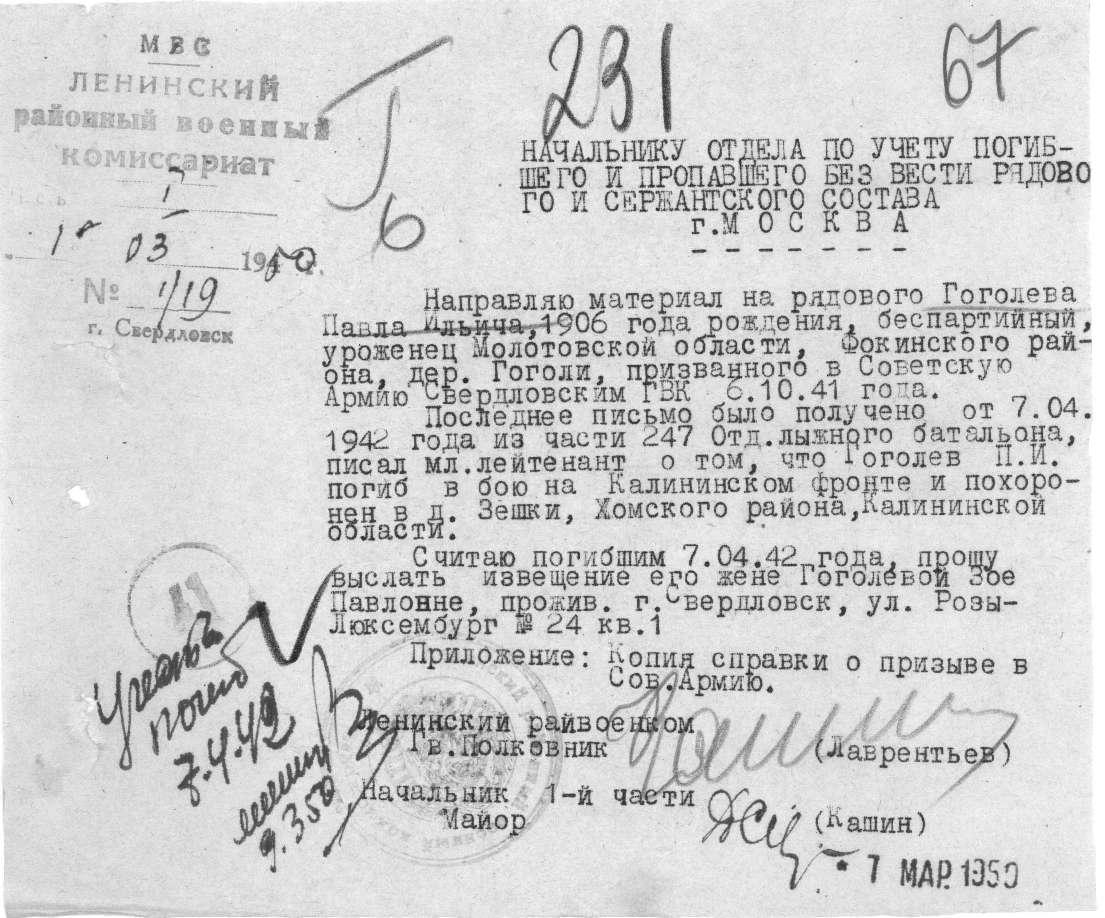 МВС
ЛЕНИНСКИЙ
районный военный
комиссариат
1
1 03 1950 г.
№ 1/19
г. Свердловск
Г
6
231
67
НАЧАЛЬНИКУ ОТДЕЛА ПО УЧЕТУ ПОГИБ-
ШЕГО И ПРОПАВШЕГО БЕЗ ВЕСТИ РЯДОВО
ГО И СЕРЖАНТСКОГО СОСТАВА
г.М О С К В А
- - - - - - - -
Направляю материал на рядового Гоголева
Павла Ильича,1906 года рождения, беспартийный,
уроженец Молотовской области, Фокинского рай-
она, дер. Гоголи, призванного в Советскую
Армию Свердловским ГВК 6.10.41 года.
Последнее письмо было получено от 7.04.
1942 года из части 247 Отд.лыжного батальона,
писал мл.лейтенант о том, что Гоголев П.И.
погиб в бою на Калининском фронте и похоро-
нен в д. Зешки, Хомского района,Калининской
области.
Считаю погибшим 7.04.42 года, прошу
выслать извещение его жене Гоголевой Зое
Павловне, прожив. г.Свердловск, ул. Розы-
Люксембург № 24 кв.1
Приложение: Копия справки о призыве в
Сов.Армию.
Ленинский райвоенком
Гв.Полковник (Лаврентьев)
Начальник 1-й части
Майор (Кашин)
7 МАР. 1950
Учесть
погиб
7.4.42
9.350